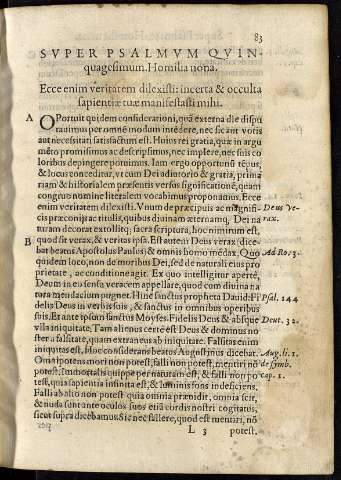 83
SVPER PSALMVM QVIN-
quagesimum. Homilia nona.
Ecce enim veritatem dilexisti: incerta & occulta
sapientiæ tuæ manifestasti mihi.
A OPortuit quidem considerationi, quæ externa die dispu
tauimus per omnē modum intēdere, nec sic aut votis
aut necessitati satisfactum est. Huius rei gratia, quæ in argu
mēto promisimus ac descripsimus, nec implere, nec suis co
loribus depingere potuimus. Iam ergo opportunū tēpus,
& locus conceditur, vt cum Dei adiutorio & gratia, prima
riam & historialem præsentis versus significationē, quam
congruis nomine litteralem vocabimus proponamus. Ecce
enim veritatem dilexisti. Vnum de præcipuis ac magnifi- Deus ve-
cis præconijs ac titulis, quibus diuinam æternamq; Dei na rax.
turam decorat extollitq; sacra scriptura, hoc nimirum est,
B quod sit verax, & veritas ipsa. Est autem Deus verax (dice
bat beatus Apostolus Paulus) & omnis homo mēdax. Quo Ad Ro. 3.
quidem loco, non de moribus Dei, sed de naturali eius pro
prietate, ac conditione agit. Ex quo intelligitur apertè,
Deum in eo sensu veracem appellare, quod cum diuina na
tura mendacium pugnet. Hinc sanctus propheta Dauid: Fi Psal. 144
delis Deus in verbis suis, & sanctus in omnibus operibus
suis. Et ante ipsum sanctus Moyses. Fidelis Deus & absque Deut. 32.
vlla iniquitate. Tam alienus certè est Deus & dominus no
ster a falsitate, quam extraneus ab iniquitate. Falsitas enim
iniquitas est, hoc considerans beatus Augustinus dicebat. Aug. li. 1.
Omnipotens mori non potest, falli non potest, mentiri nō de symb.
potest, immortalis quippe per naturam est, & falli non po cap. 1.
test, quia sapientia infinita est, & luminis fons indeficiens.
Falli ab alio non potest quia omnia præuidit, omnia scit,
& nuda sunt ante oculos suos etiā cordis nostri cogitatus,
sicut supra dicebamus. Sic nec fallere, quod est mentiri, nō
L 3 potest.